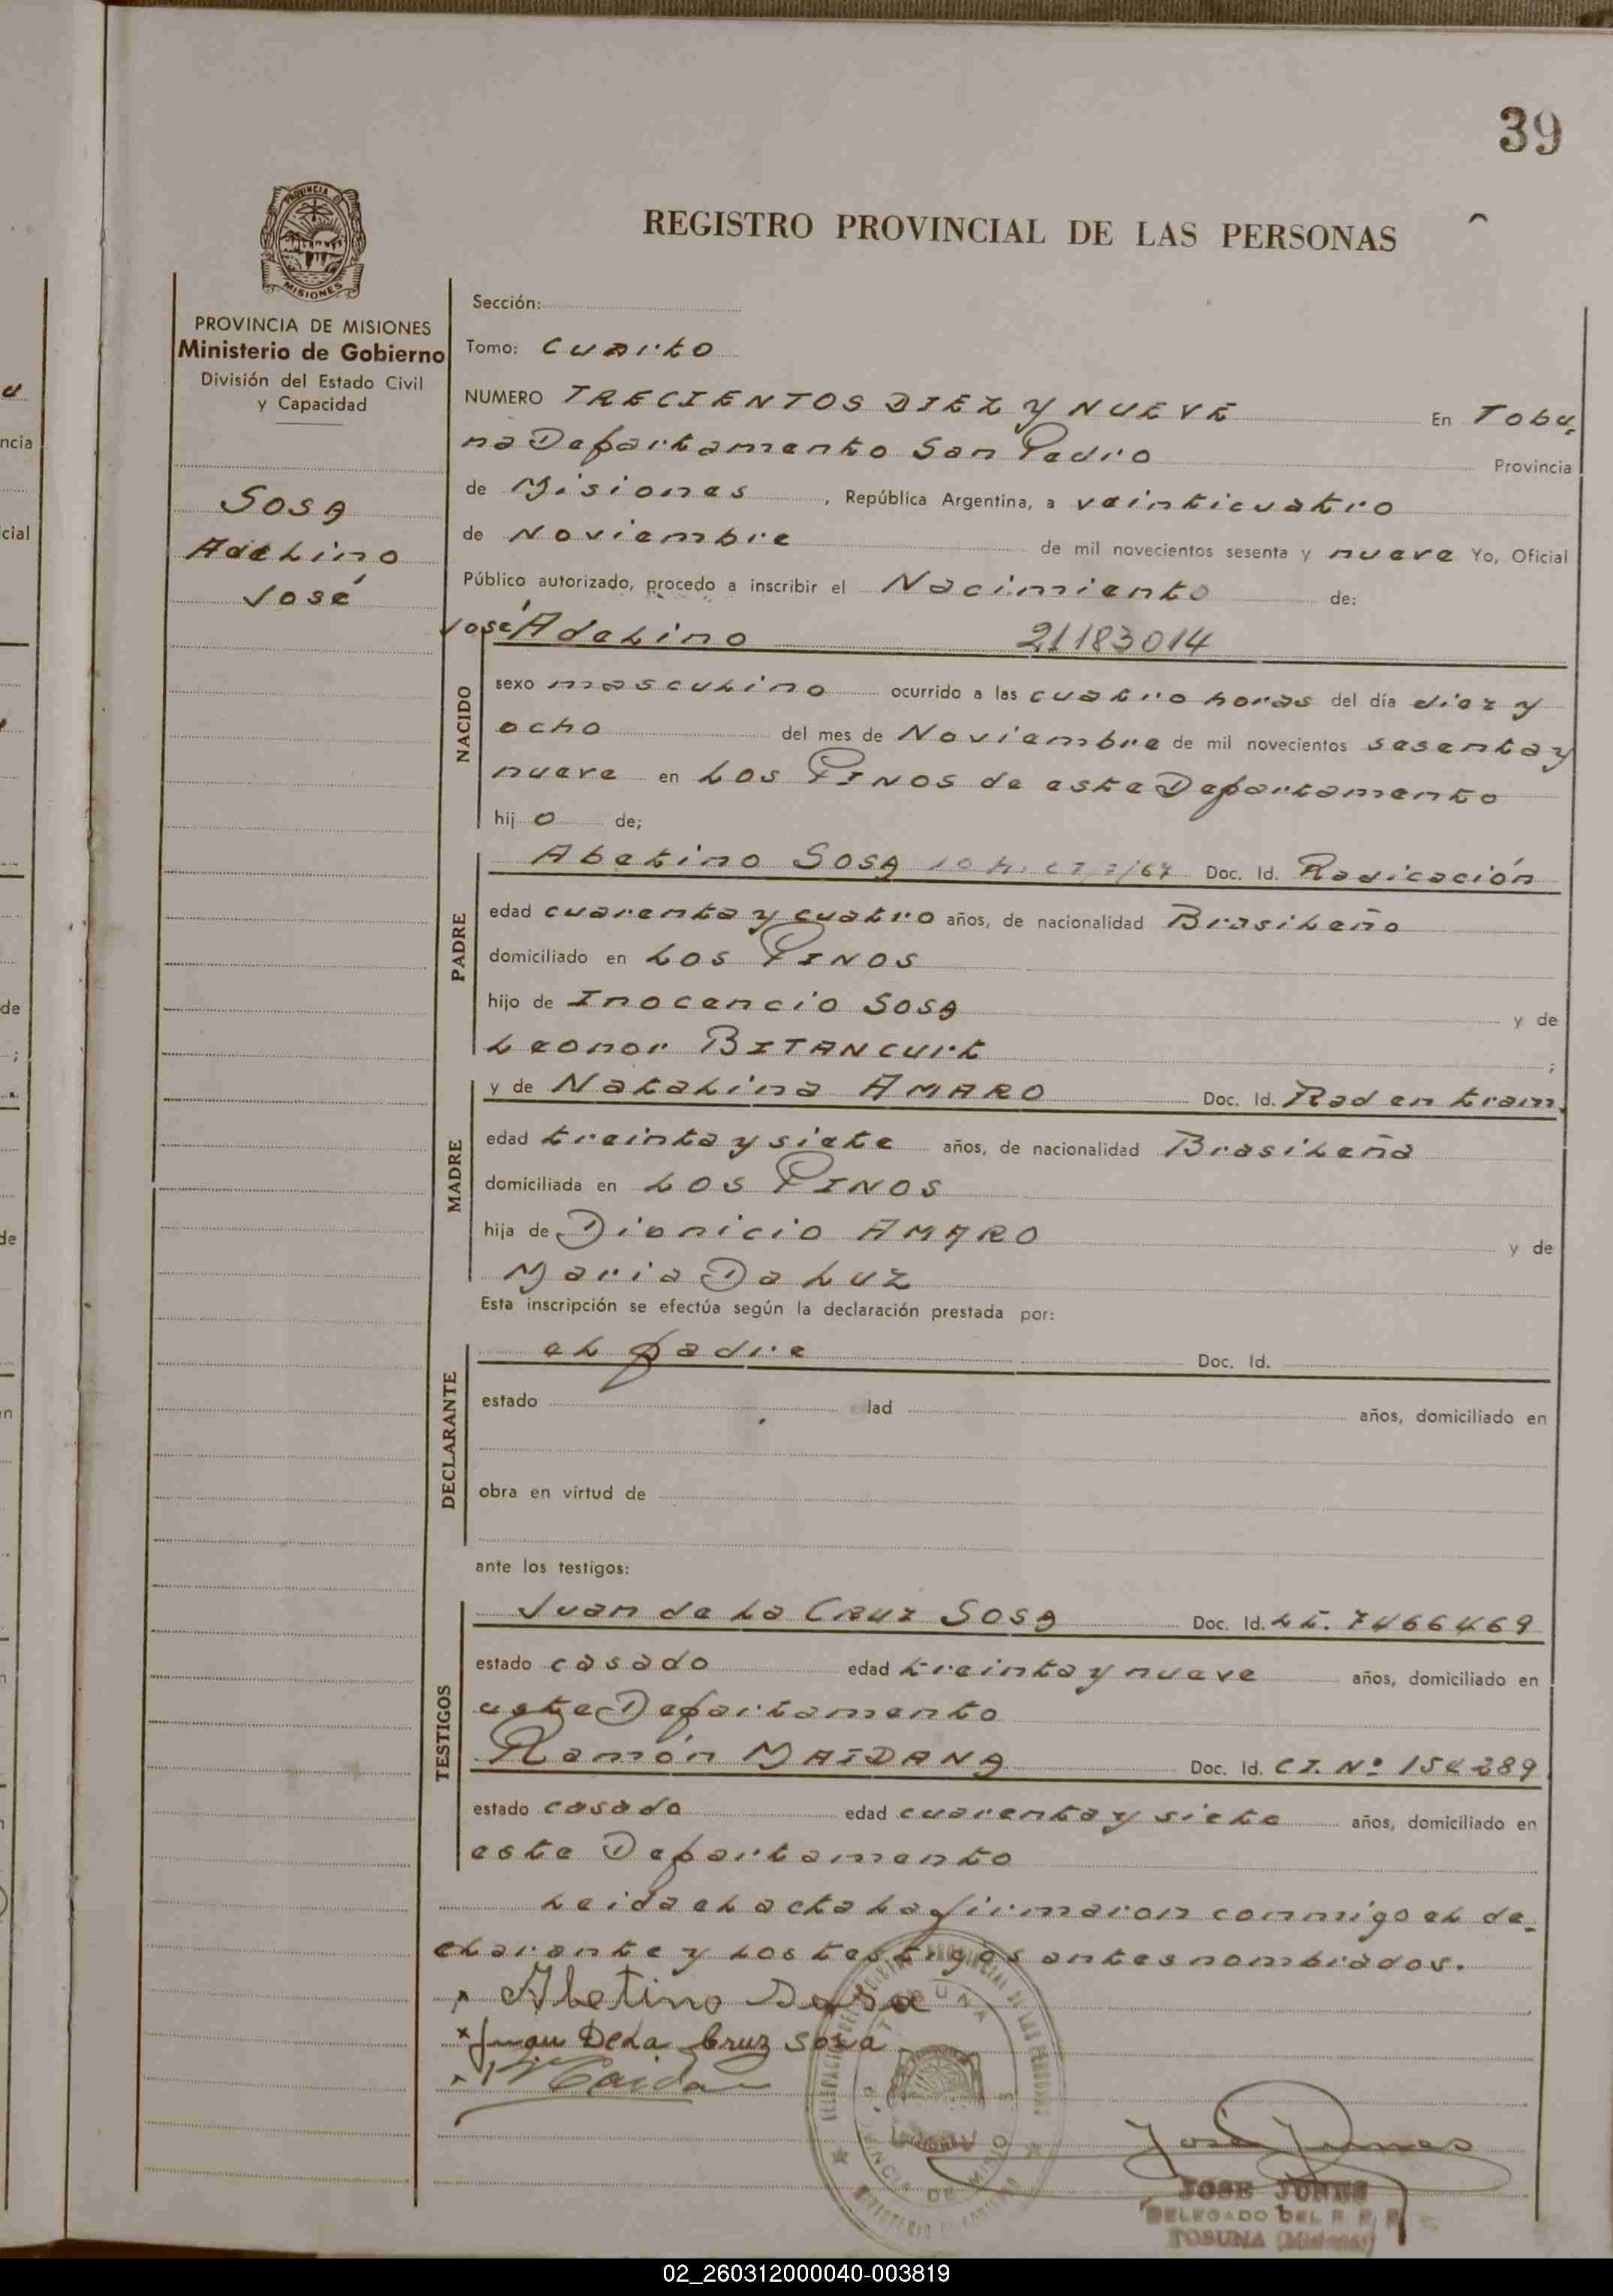 39
REGISTRO PROVINCIAL DE LAS PERSONAS
PROVINCIA DE MISIONES
Ministerio de Gobierno
División del Estado Civil
y Capacidad
Sosa
Adelino
José
Sección:
Tomo: Cuarto
NUMERO TRECIENTOS DIEZ y NUEVE En Tobu-
na Departamento San Pedro Provincia
de Misiones, República Argentina, a veinticuatro
de Noviembre de mil novecientos sesenta y nueve Yo, Oficial
Público autorizado, procedo a inscribir el Nacimiento de:
José Adelino 21183014
NACIDO
sexo masculino ocurrido a las cuatro horas del día diez y
ocho del mes de Noviembre de mil novecientos sesenta y
nueve en Los PINOS de este Departamento
hijo de;
PADRE
Abetino Sosa Doc. Id. Radicación
edad cuarenta y cuatro años, de nacionalidad Brasileño
domiciliado en Los PINOS
hijo de Inocencio Sosa y de
Leonor BITANCURT ;
MADRE
y de Natalina AMARO Doc. Id. Rad en tram.
edad treinta y siete años, de nacionalidad Brasileña
domiciliada en Los PINOS
hija de Dionicio AMARO y de
Maria Da Luz
Esta inscripción se efectúa según la declaración prestada por:
DECLARANTE
el padre Doc. Id.
estado dad años, domiciliado en
obra en virtud de
ante los testigos:
TESTIGOS
Juan de La Cruz Sosa Doc. Id. LE. 7466469
estado casado edad treinta y nueve años, domiciliado en
este Departamento
Ramón MAIDANA Doc. Id. CI. Nº 154289
estado casado edad cuarenta y siete años, domiciliado en
este Departamento
Leida el acta la firmaron conmigo el de-
clarante y los testigos antes nombrados.
Abetino Sosa
x Juan De La Cruz Sosa
JOSE JUNES
DELEGADO DEL R. P. P.
TOBUNA (Misiones)
02_260312000040-003819